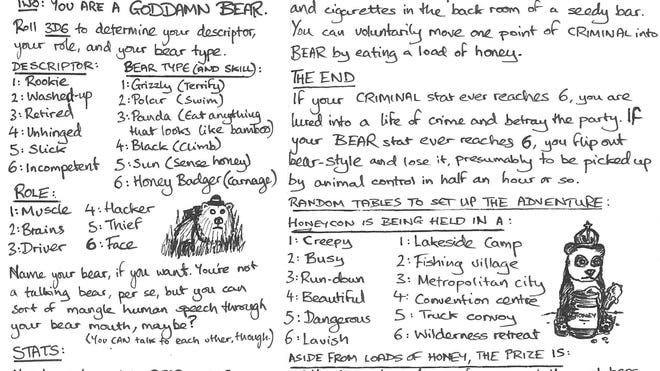 TWO: YOU ARE A GODDAMN BEAR.
Roll 3D6 to determine your descriptor,
your role, and your bear type.
DESCRIPTOR:
1: Rookie
2: Washed-up
3: Retired
4: Unhinged
5: Slick
6: Incompetent
BEAR TYPE (AND SKILL):
1: Grizzly (Terrify)
2: Polar (Swim)
3: Panda (Eat anything
that looks like bamboo)
4: Black (Climb)
5: Sun (Sense honey)
6: Honey Badger (carnage)
ROLE:
1: Muscle
2: Brains
3: Driver
4: Hacker
5: Thief
6: Face
Name your bear, if you want. You're not
a talking bear, per se, but you can
sort of mangle human speech through
your bear mouth, maybe?
(You CAN talk to each other, though.)
STATS:
and cigarettes in the back room of a seedy bar.
You can voluntarily move one point of CRIMINAL into
BEAR by eating a load of honey.
THE END
If your CRIMINAL stat ever reaches 6, you are
lured into a life of crime and betray the party. If
your BEAR stat ever reaches 6, you flip out
bear-style and lose it, presumably to be picked up
by animal control in half an hour or so.
RANDOM TABLES TO SET UP THE ADVENTURE:
HONEYCON IS BEING HELD IN A:
1: Creepy
2: Busy
3: Run-down
4: Beautiful
5: Dangerous
6: Lavish
1: Lakeside Camp
2: Fishing village
3: Metropolitan city
4: Convention centre
5: Truck convoy
6: Wilderness retreat
HONEY
ASIDE FROM LOADS OF HONEY, THE PRIZE IS: